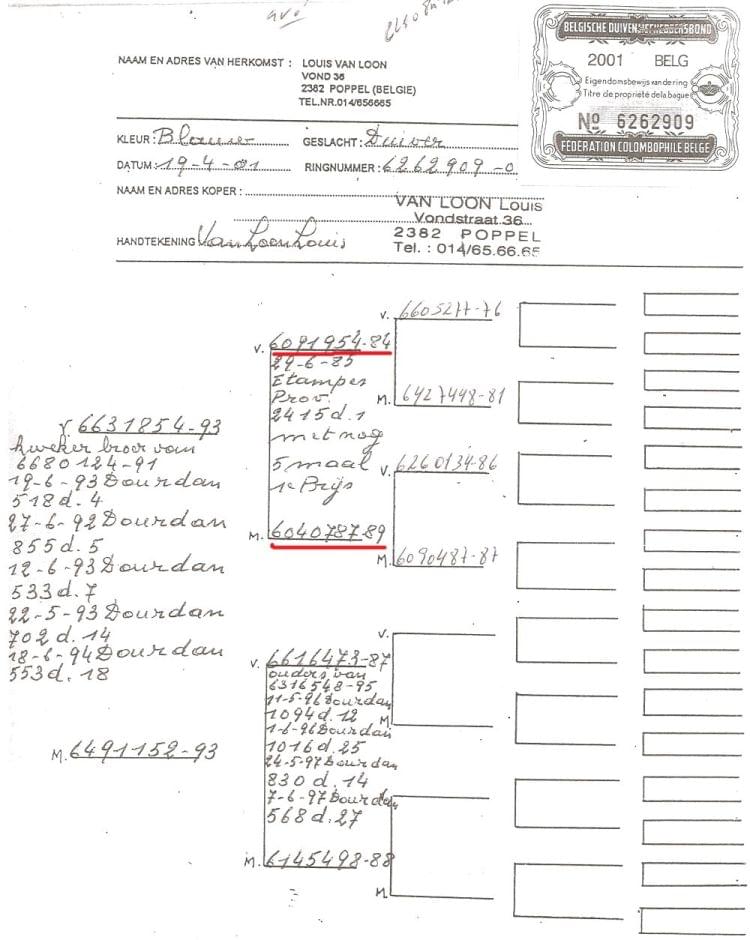 BELGISCHE DUIVENLIEFHEBBERSBOND
2001 BELG
Eigendomsbewijs van de ring
Titre de propriété de la bague
Nº 6262909
FEDERATION COLOMBOPHILE BELGE
NAAM EN ADRES VAN HERKOMST : LOUIS VAN LOON
VOND 36
2382 POPPEL (BELGIE)
TEL.NR.014/656665
KLEUR: Blauw GESLACHT: Duiver
DATUM: 19-4-01 RINGNUMMER: 6262909-0
NAAM EN ADRES KOPER :
VAN LOON Louis
Vondstraat 36
2382 POPPEL
Tel. : 014/65.66.65
HANDTEKENING Van Loon Louis
V 6631854-93
kweker broer van
6680124-91
19-6-93 Dourdan
518 d. 4
27-6-92 Dourdan
855 d. 5
12-6-93 Dourdan
533 d. 7
22-5-93 Dourdan
702 d. 14
18-6-94 Dourdan
553 d. 18
M. 6491152-93
V. 6091954-84
29-6-85
Etampes
Prov.
2415 d. 1
met nog
5 maal
1e Prijs
M. 6040787-89
V. 6616473-87
ouders van
6316548-95
11-5-96 Dourdan
1094 d. 12
1-6-96 Dourdan
1016 d. 25
24-5-97 Dourdan
830 d. 14
7-6-97 Dourdan
568 d. 27
M. 6145498-88
V. 6605277-76
M. 6427498-81
V. 6260134-86
M. 6090487-87
V.
M
V.
M